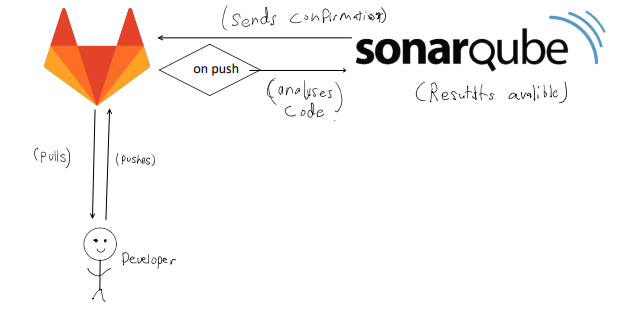 (Sends confirmation)
sonarqube
on push
(analyses
code)
(Results avalible)
(pulls)
(pushes)
Developer